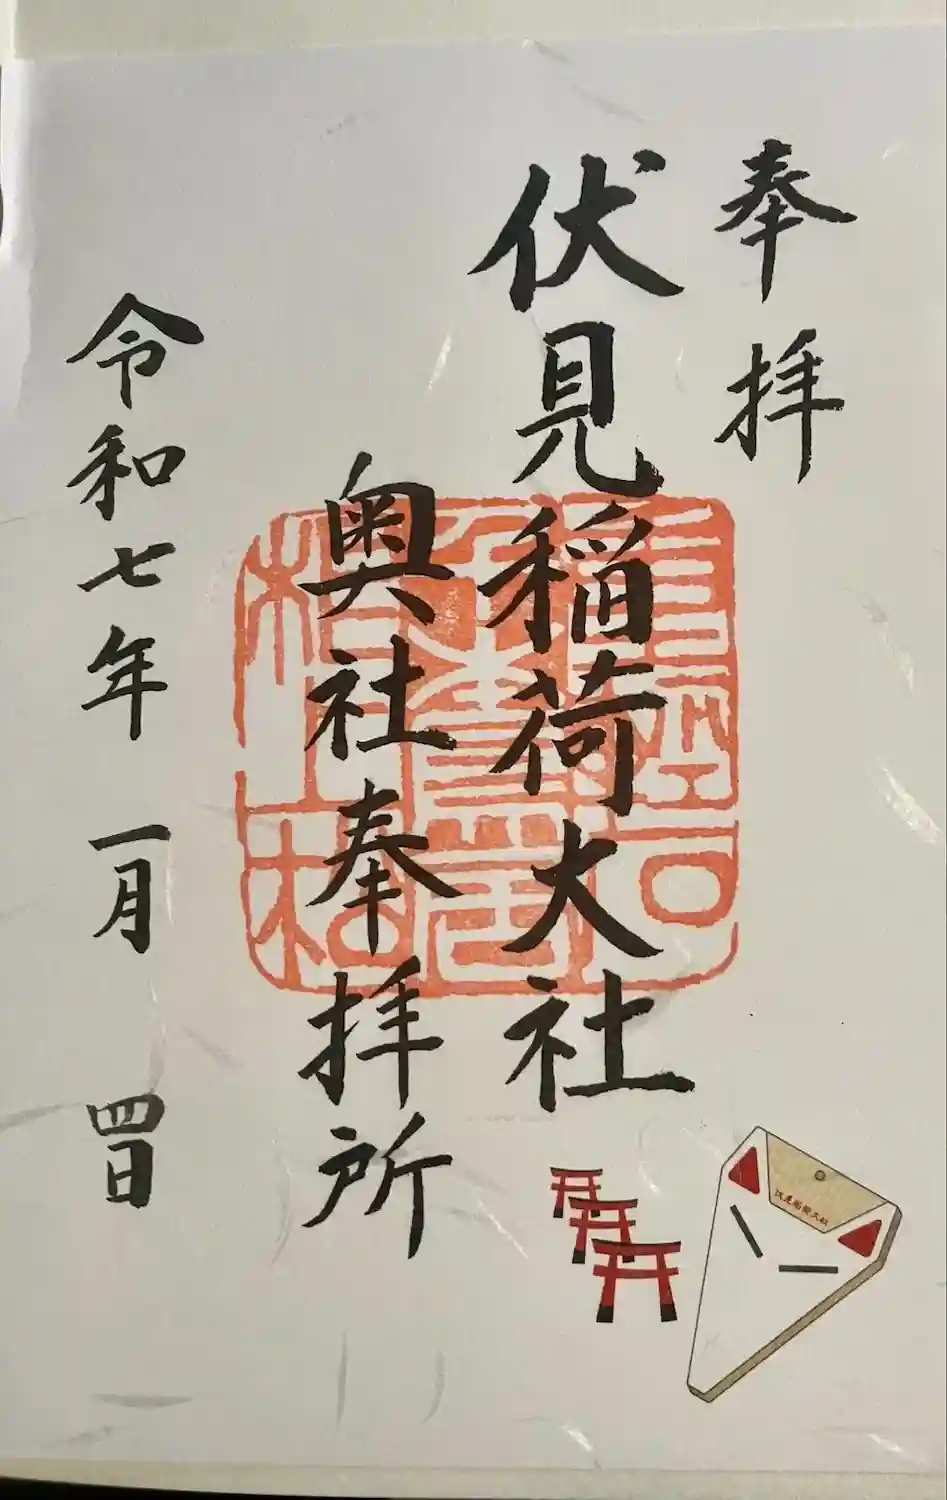 奉拝
伏見稲荷大社
奥社奉拝所
令和七年 一月 四日
伏見稲荷大社